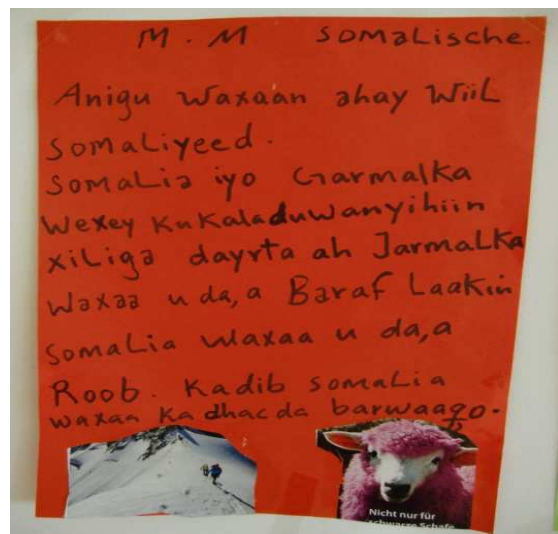 M. M Somalische.
Anigu waxaan ahay wiil
Somaliyeed.
Somalia iyo Garmalka
wexey kukaladuwanyihiin
xiliga dayrta ah Jarmalka
waxaa u da,a Baraf Laakin
Somalia waxaa u da,a
Roob. Kadib Somalia
waxaa ka dhacda barwaaqo.
Nicht nur für
schwarze Schafe